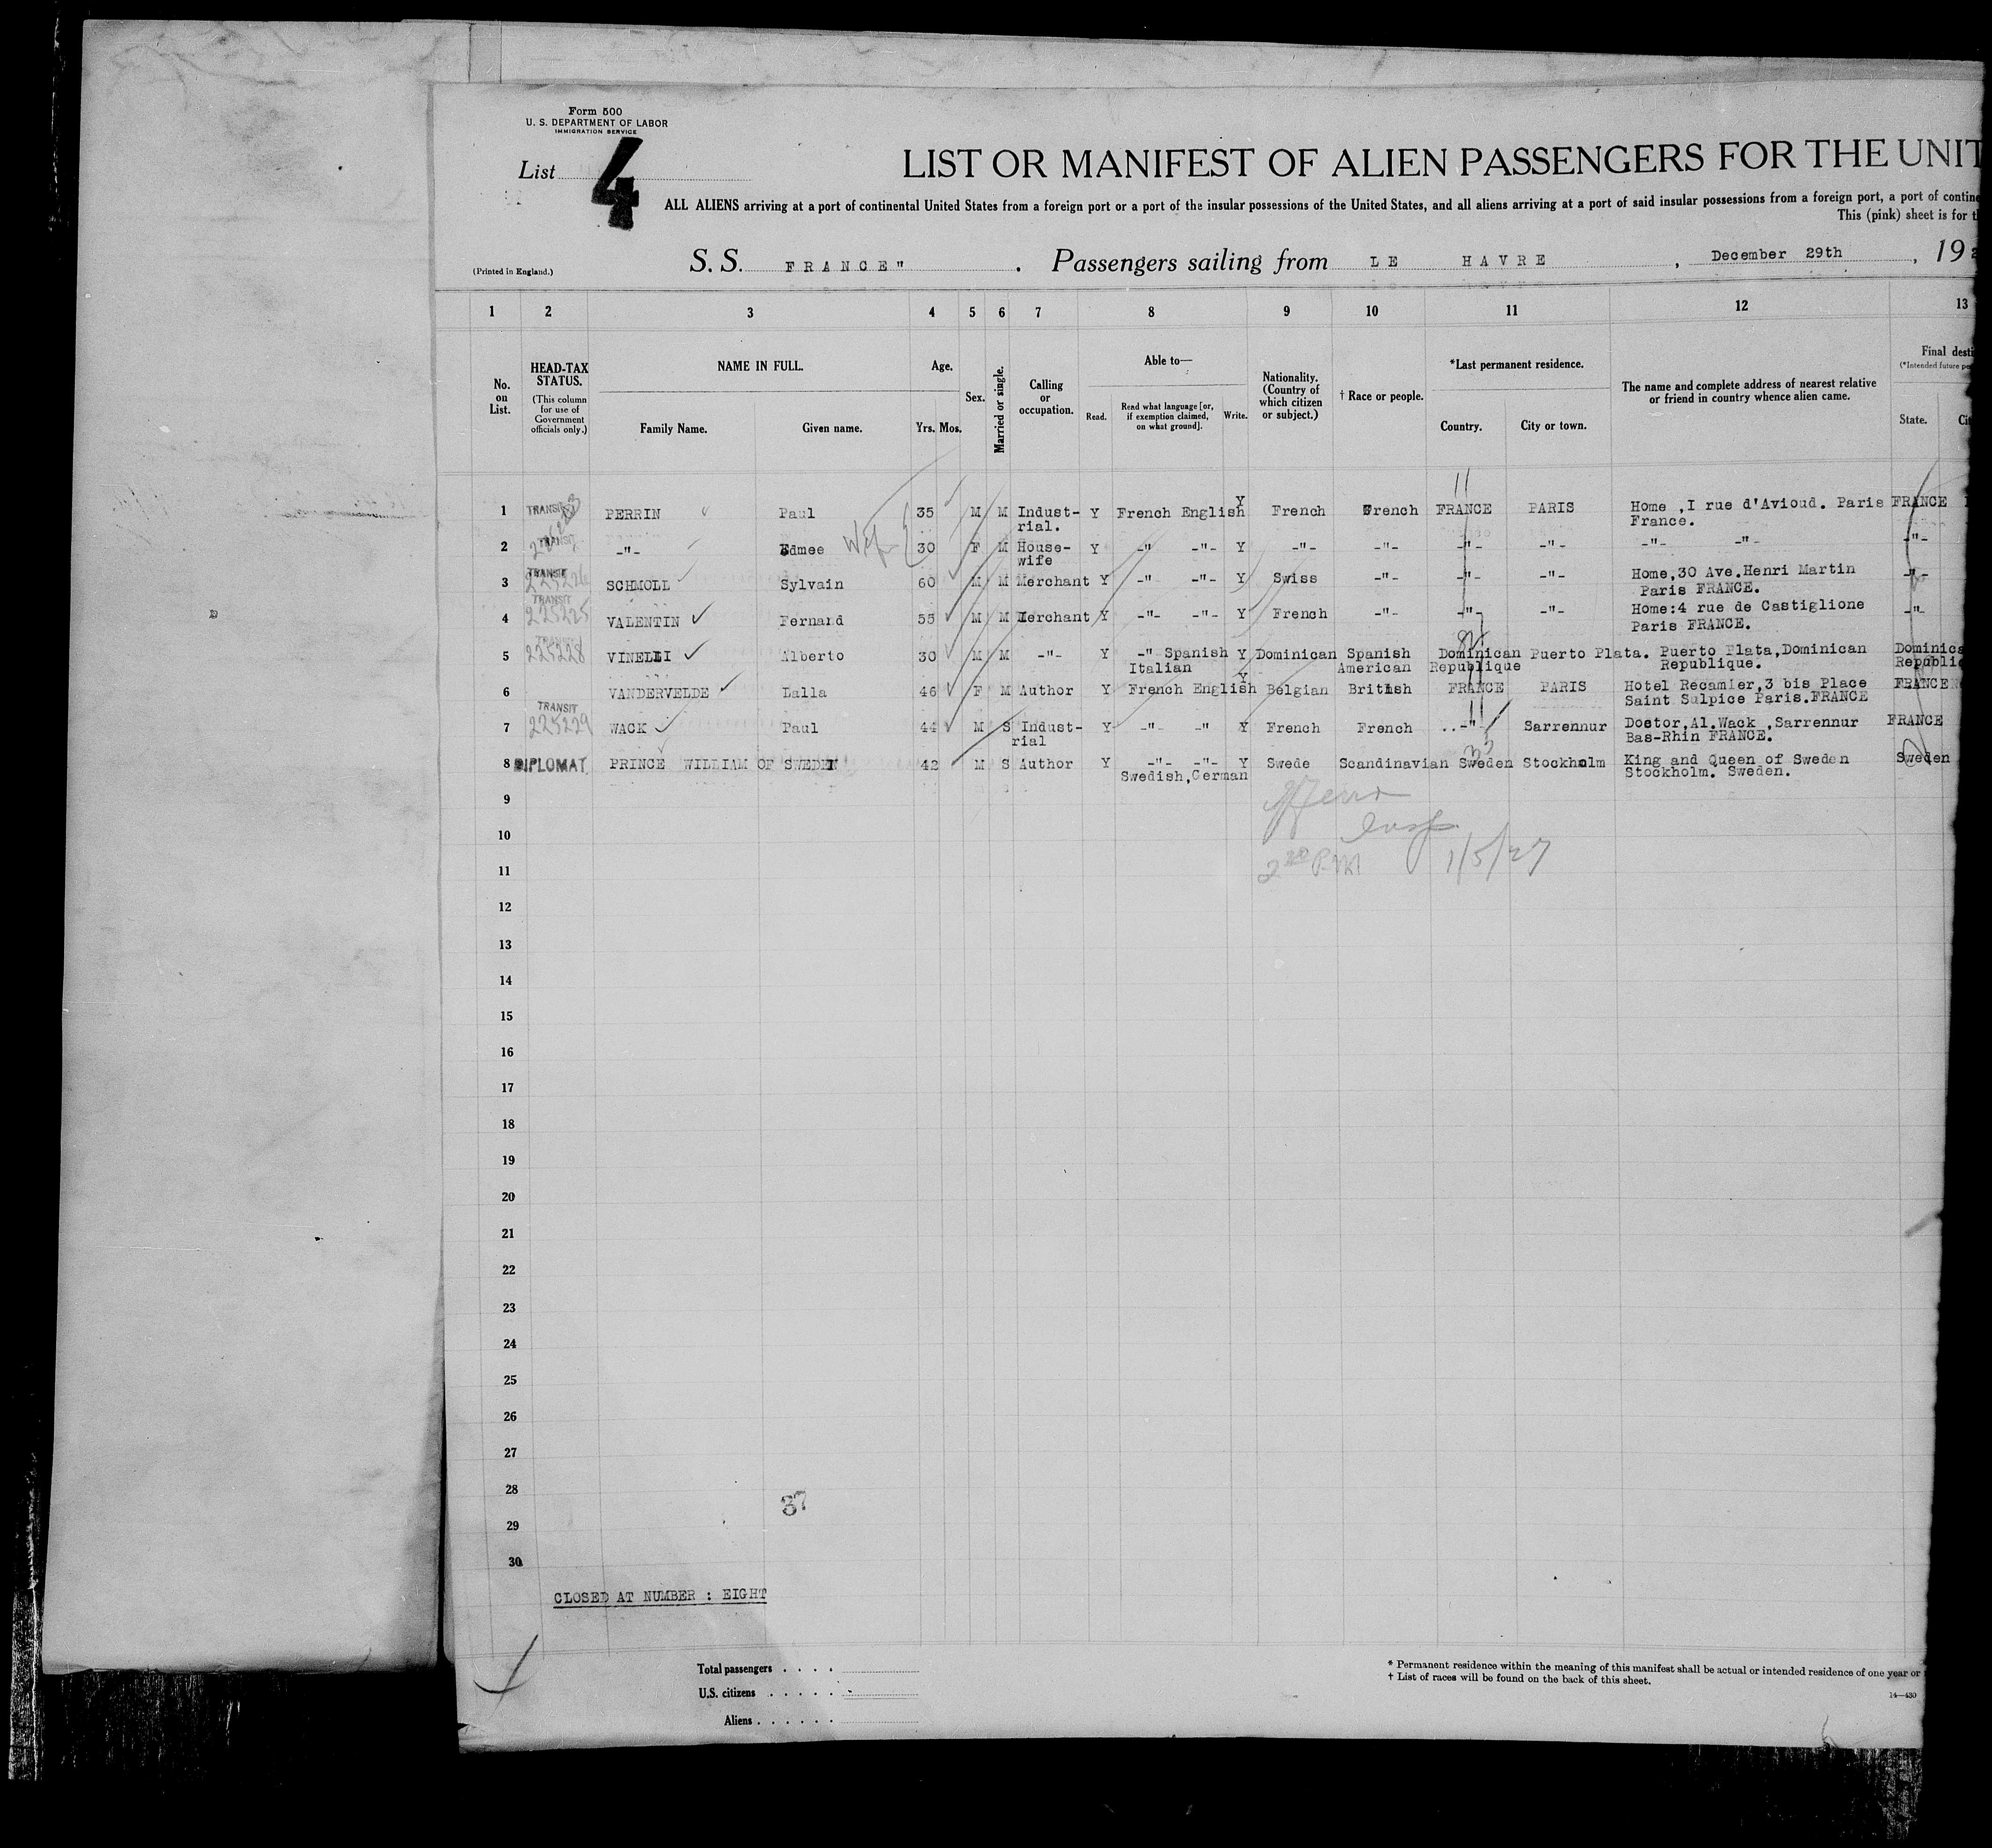 Form 500
U. S. DEPARTMENT OF LABOR
IMMIGRATION SERVICE
List 4
LIST OR MANIFEST OF ALIEN PASSENGERS FOR THE UNIT
ALL ALIENS arriving at a port of continental United States from a foreign port or a port of the insular possessions of the United States, and all aliens arriving at a port of said insular possessions from a foreign port, a port of contine
This (pink) sheet is for t
(Printed in England.) S. S. FRANCE" . Passengers sailing from LE HAVRE , December 29th , 19
1 2 3 4 5 6 7 8 9 10 11 12 13
No. on List.
HEAD-TAX STATUS.
(This column for use of Government officials only.)
NAME IN FULL.
Family Name. Given name.
Age.
Yrs. Mos.
Sex.
Married or single.
Calling or occupation.
Able to—
Read. Read what language [or, if exemption claimed, on what ground]. Write.
Nationality. (Country of which citizen or subject.)
† Race or people.
*Last permanent residence.
Country. City or town.
The name and complete address of nearest relative or friend in country whence alien came.
Final desti
(*Intended future pe
State. Ci
1 TRANSIT PERRIN Paul 35 M M Indust- Y French English Y French French FRANCE PARIS Home ,I rue d'Avioud. Paris FRANCE
rial. France.
2 TRANSIT -"- Edmee Wife 30 F M House- Y -"- -"- Y -"- -"- -"- -"- -"- -"- -"-
wife
3 TRANSIT 225226 SCHMOLL Sylvain 60 M M Merchant Y -"- -"- Y Swiss -"- -"- -"- Home,30 Ave.Henri Martin -"-
Paris FRANCE.
4 TRANSIT 225225 VALENTIN Fernand 55 M M Merchant Y -"- -"- Y French -"- -"- -"- Home:4 rue de Castiglione -"-
Paris FRANCE.
5 TRANSIT 225228 VINELLI Alberto 30 M M -"- Y -"- Spanish Y Dominican Spanish Dominican Puerto Plata. Puerto Plata,Dominican Dominica
Italian American Republique Republique. Republi
6 VANDERVELDE Lalla 46 F M Author Y French English Y Belgian British FRANCE PARIS Hotel Recamier,3 bis Place FRANCE
Saint Sulpice Paris.FRANCE
7 TRANSIT 225229 WACK Paul 44 M S Indust- Y -"- -" Y French French -"- Sarrennur Doctor,Al.Wack ,Sarrennur FRANCE
rial Bas-Rhin FRANCE.
8 DIPLOMAT PRINCE WILLIAM OF SWEDEN 42 M S Author Y -"- -"- Y Swede Scandinavian Sweden Stockholm King and Queen of Sweden Sweden
Swedish,German Stockholm. Sweden.
9
10
11 2 20 P.M 1/5/27
12
13
14
15
16
17
18
19
20
21
22
23
24
25
26
27
28
37
29
30
CLOSED AT NUMBER : EIGHT
Total passengers . . . .
U.S. citizens . . . . .
Aliens . . . . . .
* Permanent residence within the meaning of this manifest shall be actual or intended residence of one year or
† List of races will be found on the back of this sheet.
14—430